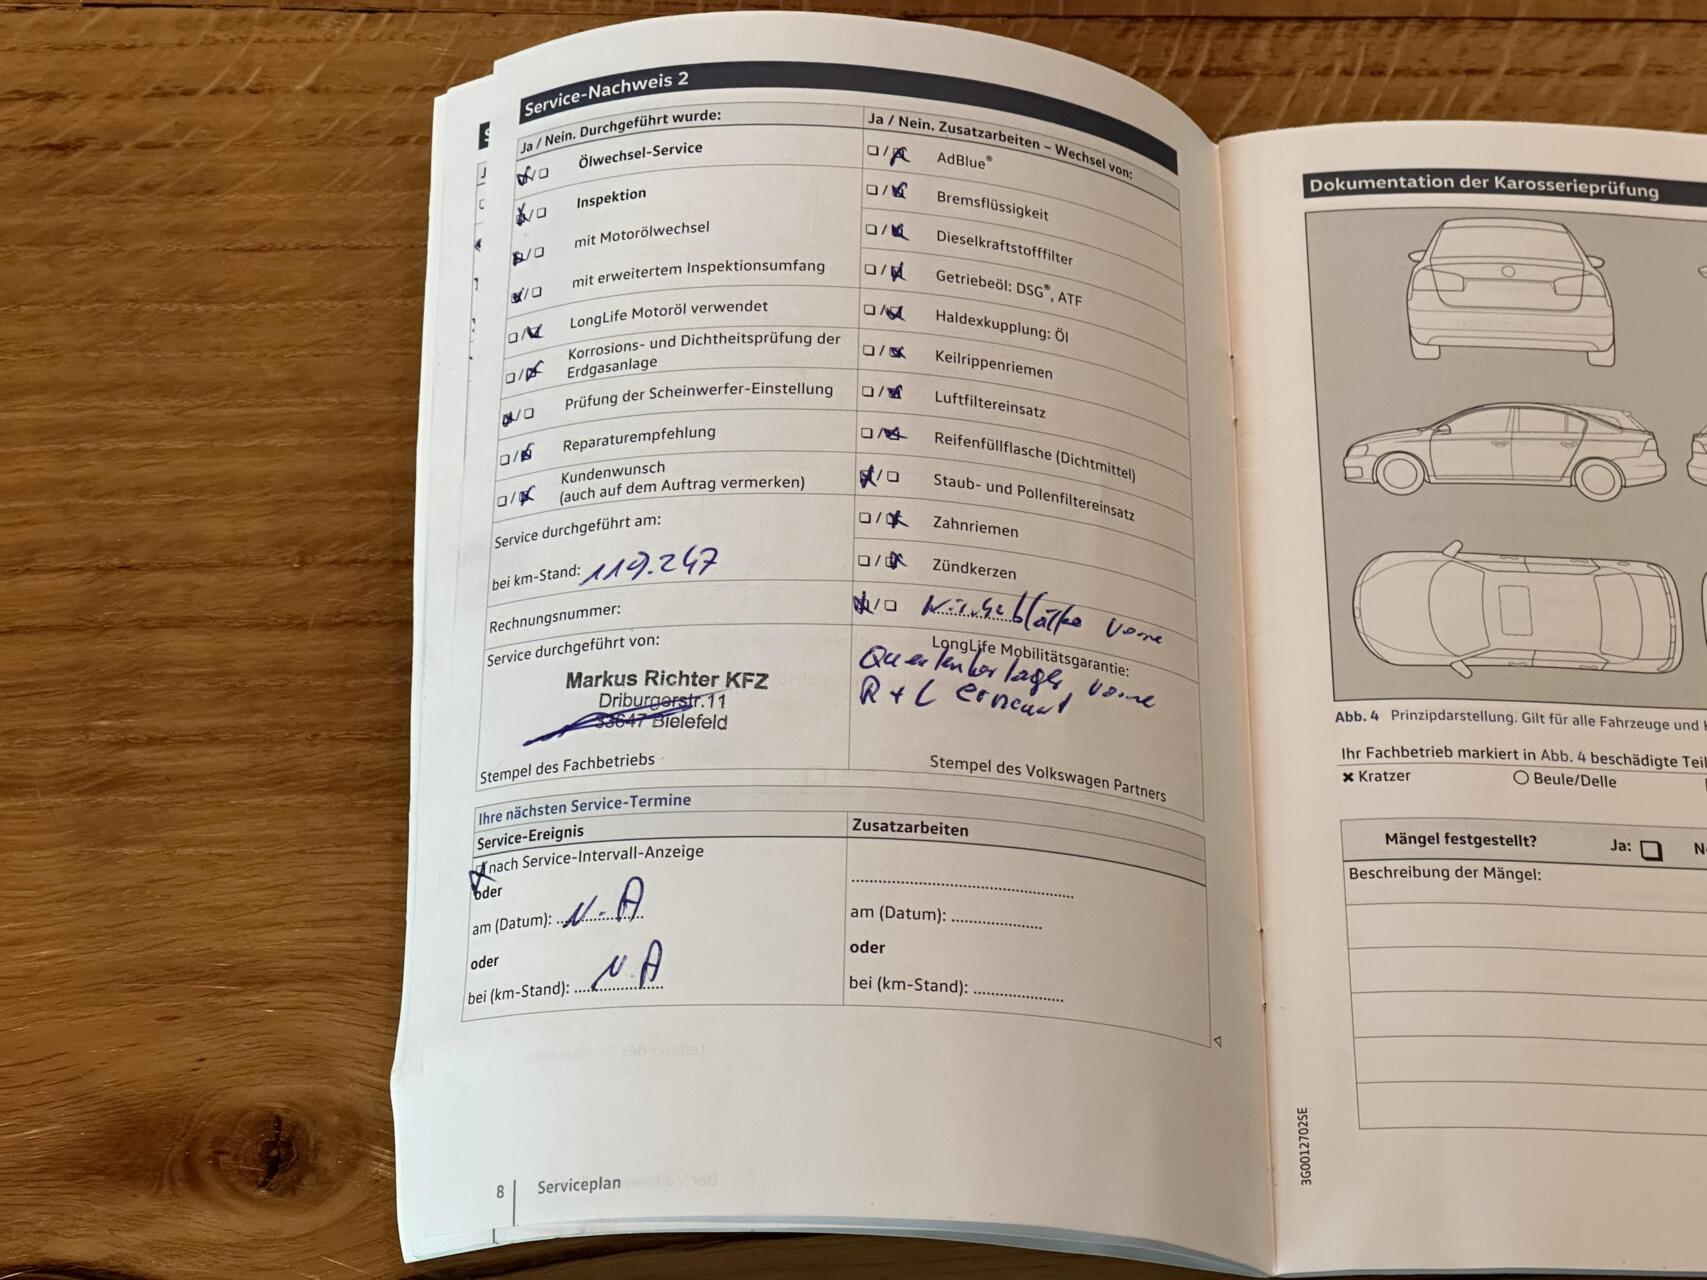 Service-Nachweis 2
Ja / Nein. Durchgeführt wurde:
Ölwechsel-Service
Inspektion
mit Motorölwechsel
mit erweitertem Inspektionsumfang
LongLife Motoröl verwendet
Korrosions- und Dichtheitsprüfung der
Erdgasanlage
Prüfung der Scheinwerfer-Einstellung
Reparaturempfehlung
Kundenwunsch
(auch auf dem Auftrag vermerken)
Service durchgeführt am:
bei km-Stand: 119.247
Rechnungsnummer:
Service durchgeführt von:
Markus Richter KFZ
Driburgerstr.11
33647 Bielefeld
Stempel des Fachbetriebs
Ja / Nein. Zusatzarbeiten – Wechsel von:
AdBlue®
Bremsflüssigkeit
Dieselkraftstofffilter
Getriebeöl: DSG®, ATF
Haldexkupplung: Öl
Keilrippenriemen
Luftfiltereinsatz
Reifenfüllflasche (Dichtmittel)
Staub- und Pollenfiltereinsatz
Zahnriemen
Zündkerzen
vorne
LongLife Mobilitätsgarantie:
Querlenkerlager vorne
R + L erneuert
Stempel des Volkswagen Partners
Ihre nächsten Service-Termine
Service-Ereignis
nach Service-Intervall-Anzeige
oder
am (Datum): N.A
oder
bei (km-Stand): N.A
Zusatzarbeiten
am (Datum):
oder
bei (km-Stand):
8 Serviceplan
Dokumentation der Karosserieprüfung
Abb. 4 Prinzipdarstellung. Gilt für alle Fahrzeuge und
Ihr Fachbetrieb markiert in Abb. 4 beschädigte Teil
Kratzer
Beule/Delle
Mängel festgestellt? Ja:
Beschreibung der Mängel:
3G0012702SE